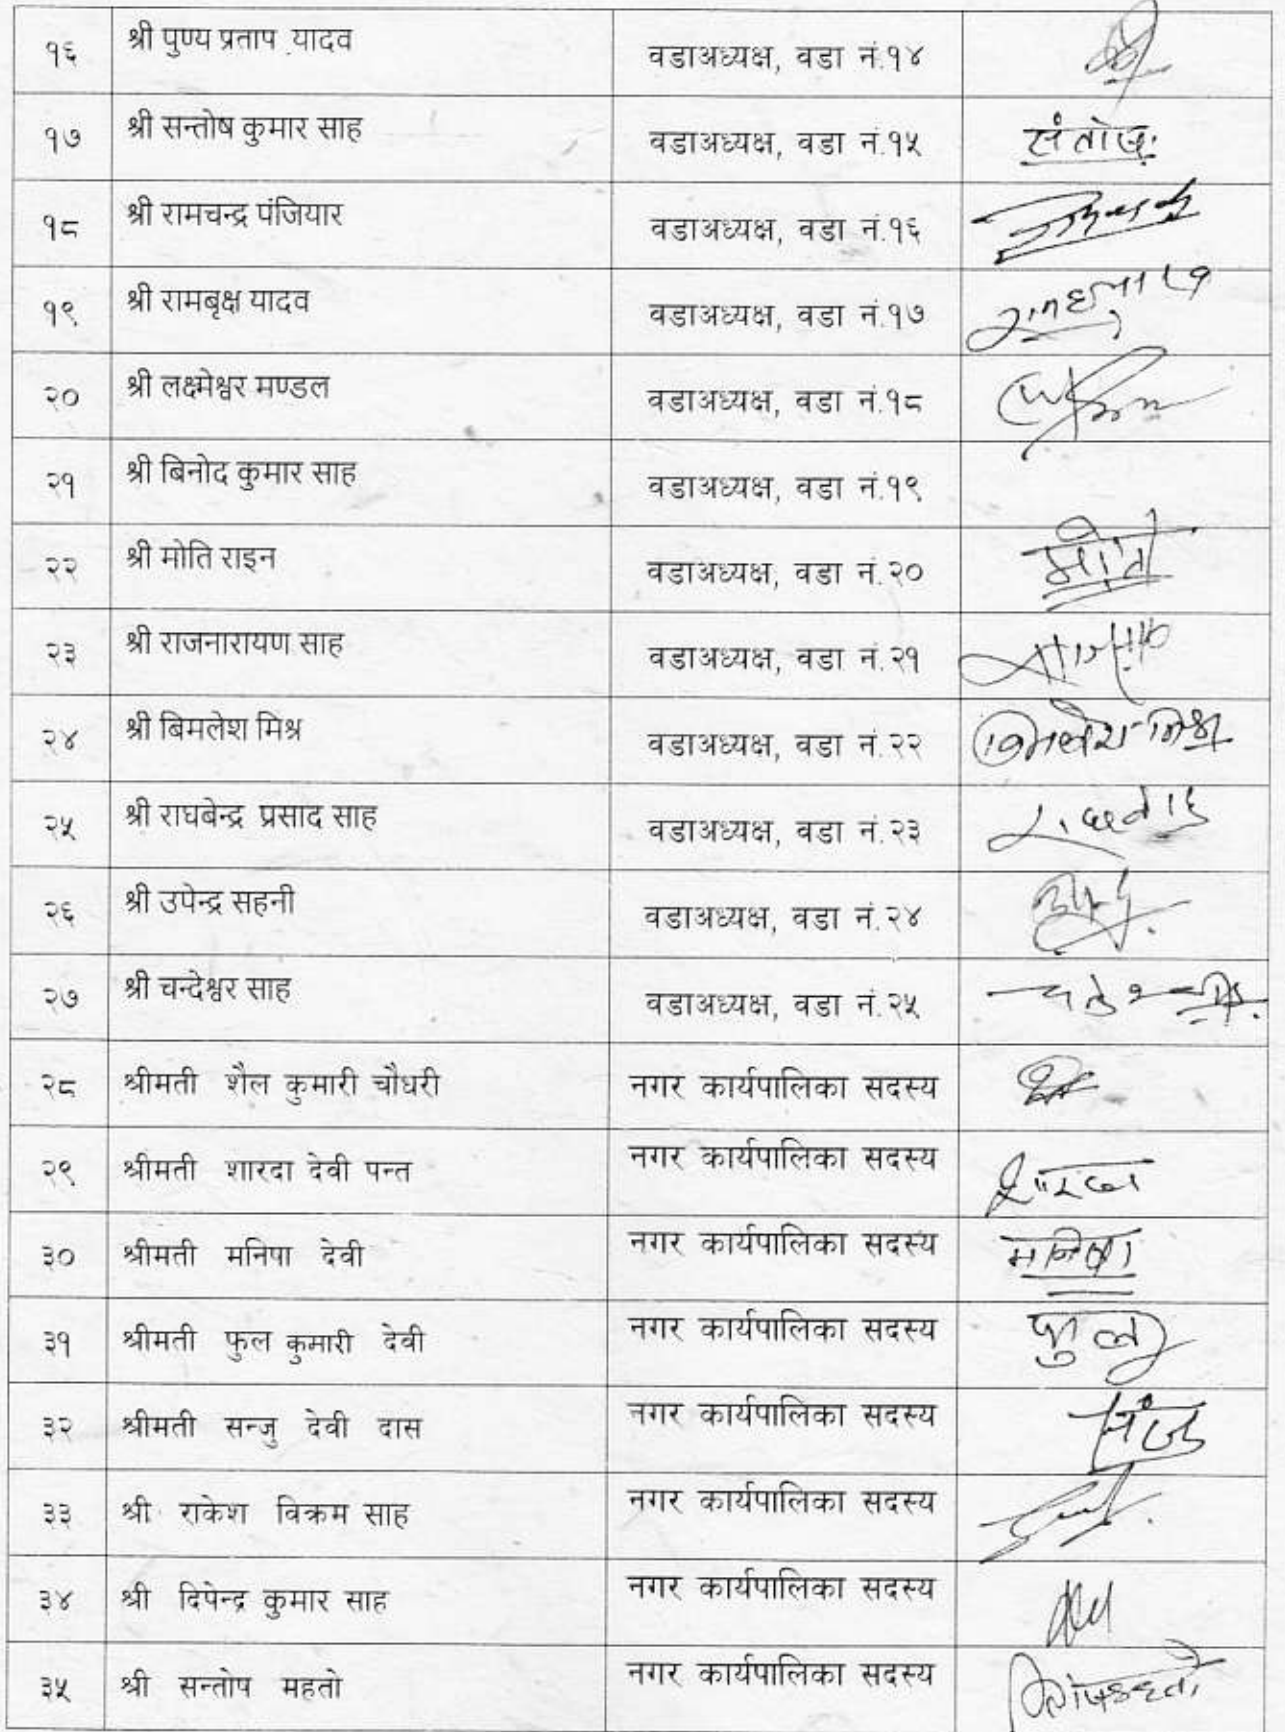 १६ श्री पुण्य प्रताप यादव वडाअध्यक्ष, वडा नं.१४
१७ श्री सन्तोष कुमार साह वडाअध्यक्ष, वडा नं.१५ संतोष
१८ श्री रामचन्द्र पंजियार वडाअध्यक्ष, वडा नं.१६
१९ श्री रामबृक्ष यादव वडाअध्यक्ष, वडा नं.१७
२० श्री लक्ष्मेश्वर मण्डल वडाअध्यक्ष, वडा नं.१८
२१ श्री बिनोद कुमार साह वडाअध्यक्ष, वडा नं.१९
२२ श्री मोति राइन वडाअध्यक्ष, वडा नं.२०
२३ श्री राजनारायण साह वडाअध्यक्ष, वडा नं.२१
२४ श्री बिमलेश मिश्र वडाअध्यक्ष, वडा नं.२२ बिमलेश मिश्र
२५ श्री राघबेन्द्र प्रसाद साह वडाअध्यक्ष, वडा नं.२३
२६ श्री उपेन्द्र सहनी वडाअध्यक्ष, वडा नं.२४
२७ श्री चन्देश्वर साह वडाअध्यक्ष, वडा नं.२५
२८ श्रीमती शैल कुमारी चौधरी नगर कार्यपालिका सदस्य
२९ श्रीमती शारदा देवी पन्त नगर कार्यपालिका सदस्य शारदा
३० श्रीमती मनिषा देवी नगर कार्यपालिका सदस्य मनिषा
३१ श्रीमती फुल कुमारी देवी नगर कार्यपालिका सदस्य फुल
३२ श्रीमती सन्जु देवी दास नगर कार्यपालिका सदस्य संजु
३३ श्री राकेश विक्रम साह नगर कार्यपालिका सदस्य
३४ श्री दिपेन्द्र कुमार साह नगर कार्यपालिका सदस्य
३५ श्री सन्तोष महतो नगर कार्यपालिका सदस्य